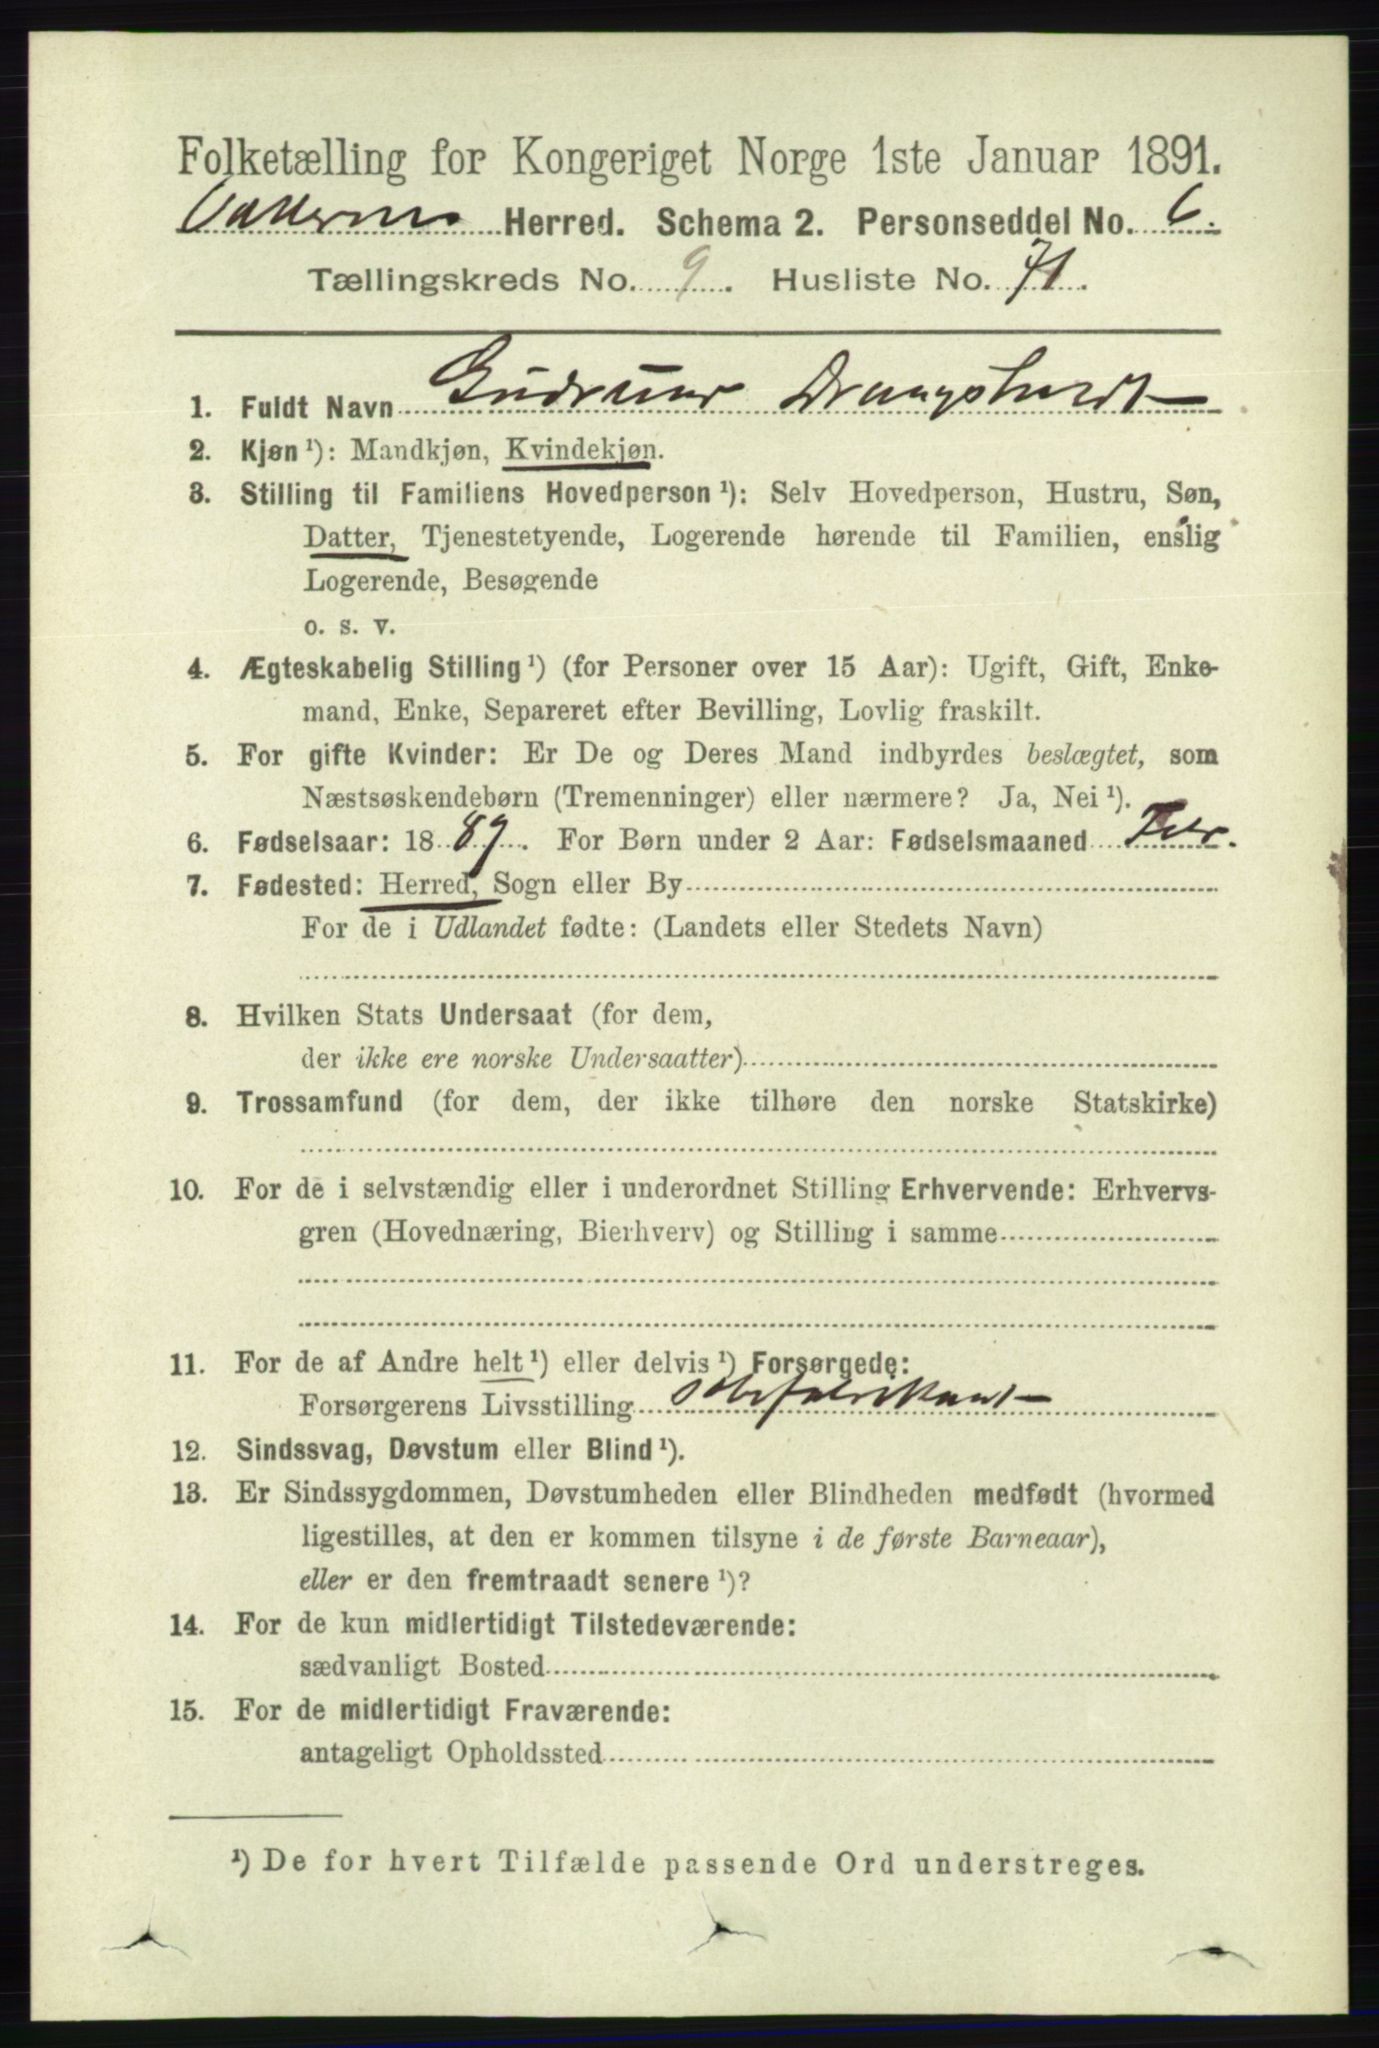 Folketælling for Kongeriget Norge 1ste Januar 1891.
Herred. Schema 2. Personseddel No. 6.
Tællingskreds No. 9. Husliste No. 71.
1. Fuldt Navn Gudrun Drangsholdt
2. Kjøn ¹): Mandkjøn, Kvindekjøn.
3. Stilling til Familiens Hovedperson ¹): Selv Hovedperson, Hustru, Søn,
Datter, Tjenestetyende, Logerende hørende til Familien, enslig
Logerende, Besøgende
o. s. v.
4. Ægteskabelig Stilling ¹) (for Personer over 15 Aar): Ugift, Gift, Enke-
mand, Enke, Separeret efter Bevilling, Lovlig fraskilt.
5. For gifte Kvinder: Er De og Deres Mand indbyrdes beslægtet, som
Næstsøskendebørn (Tremenninger) eller nærmere? Ja, Nei ¹).
6. Fødselsaar: 1889. For Børn under 2 Aar: Fødselsmaaned Febr.
7. Fødested: Herred, Sogn eller By
For de i Udlandet fødte: (Landets eller Stedets Navn)
8. Hvilken Stats Undersaat (for dem,
der ikke ere norske Undersaatter)
9. Trossamfund (for dem, der ikke tilhøre den norske Statskirke)
10. For de i selvstændig eller i underordnet Stilling Erhvervende: Erhvervs-
gren (Hovednæring, Bierhverv) og Stilling i samme
11. For de af Andre helt ¹) eller delvis ¹) Forsørgede:
Forsørgerens Livsstilling
12. Sindssvag, Døvstum eller Blind ¹).
13. Er Sindssygdommen, Døvstumheden eller Blindheden medfødt (hvormed
ligestilles, at den er kommen tilsyne i de første Barneaar),
eller er den fremtraadt senere ¹)?
14. For de kun midlertidigt Tilstedeværende:
sædvanligt Bosted
15. For de midlertidigt Fraværende:
antageligt Opholdssted
¹) De for hvert Tilfælde passende Ord understreges.